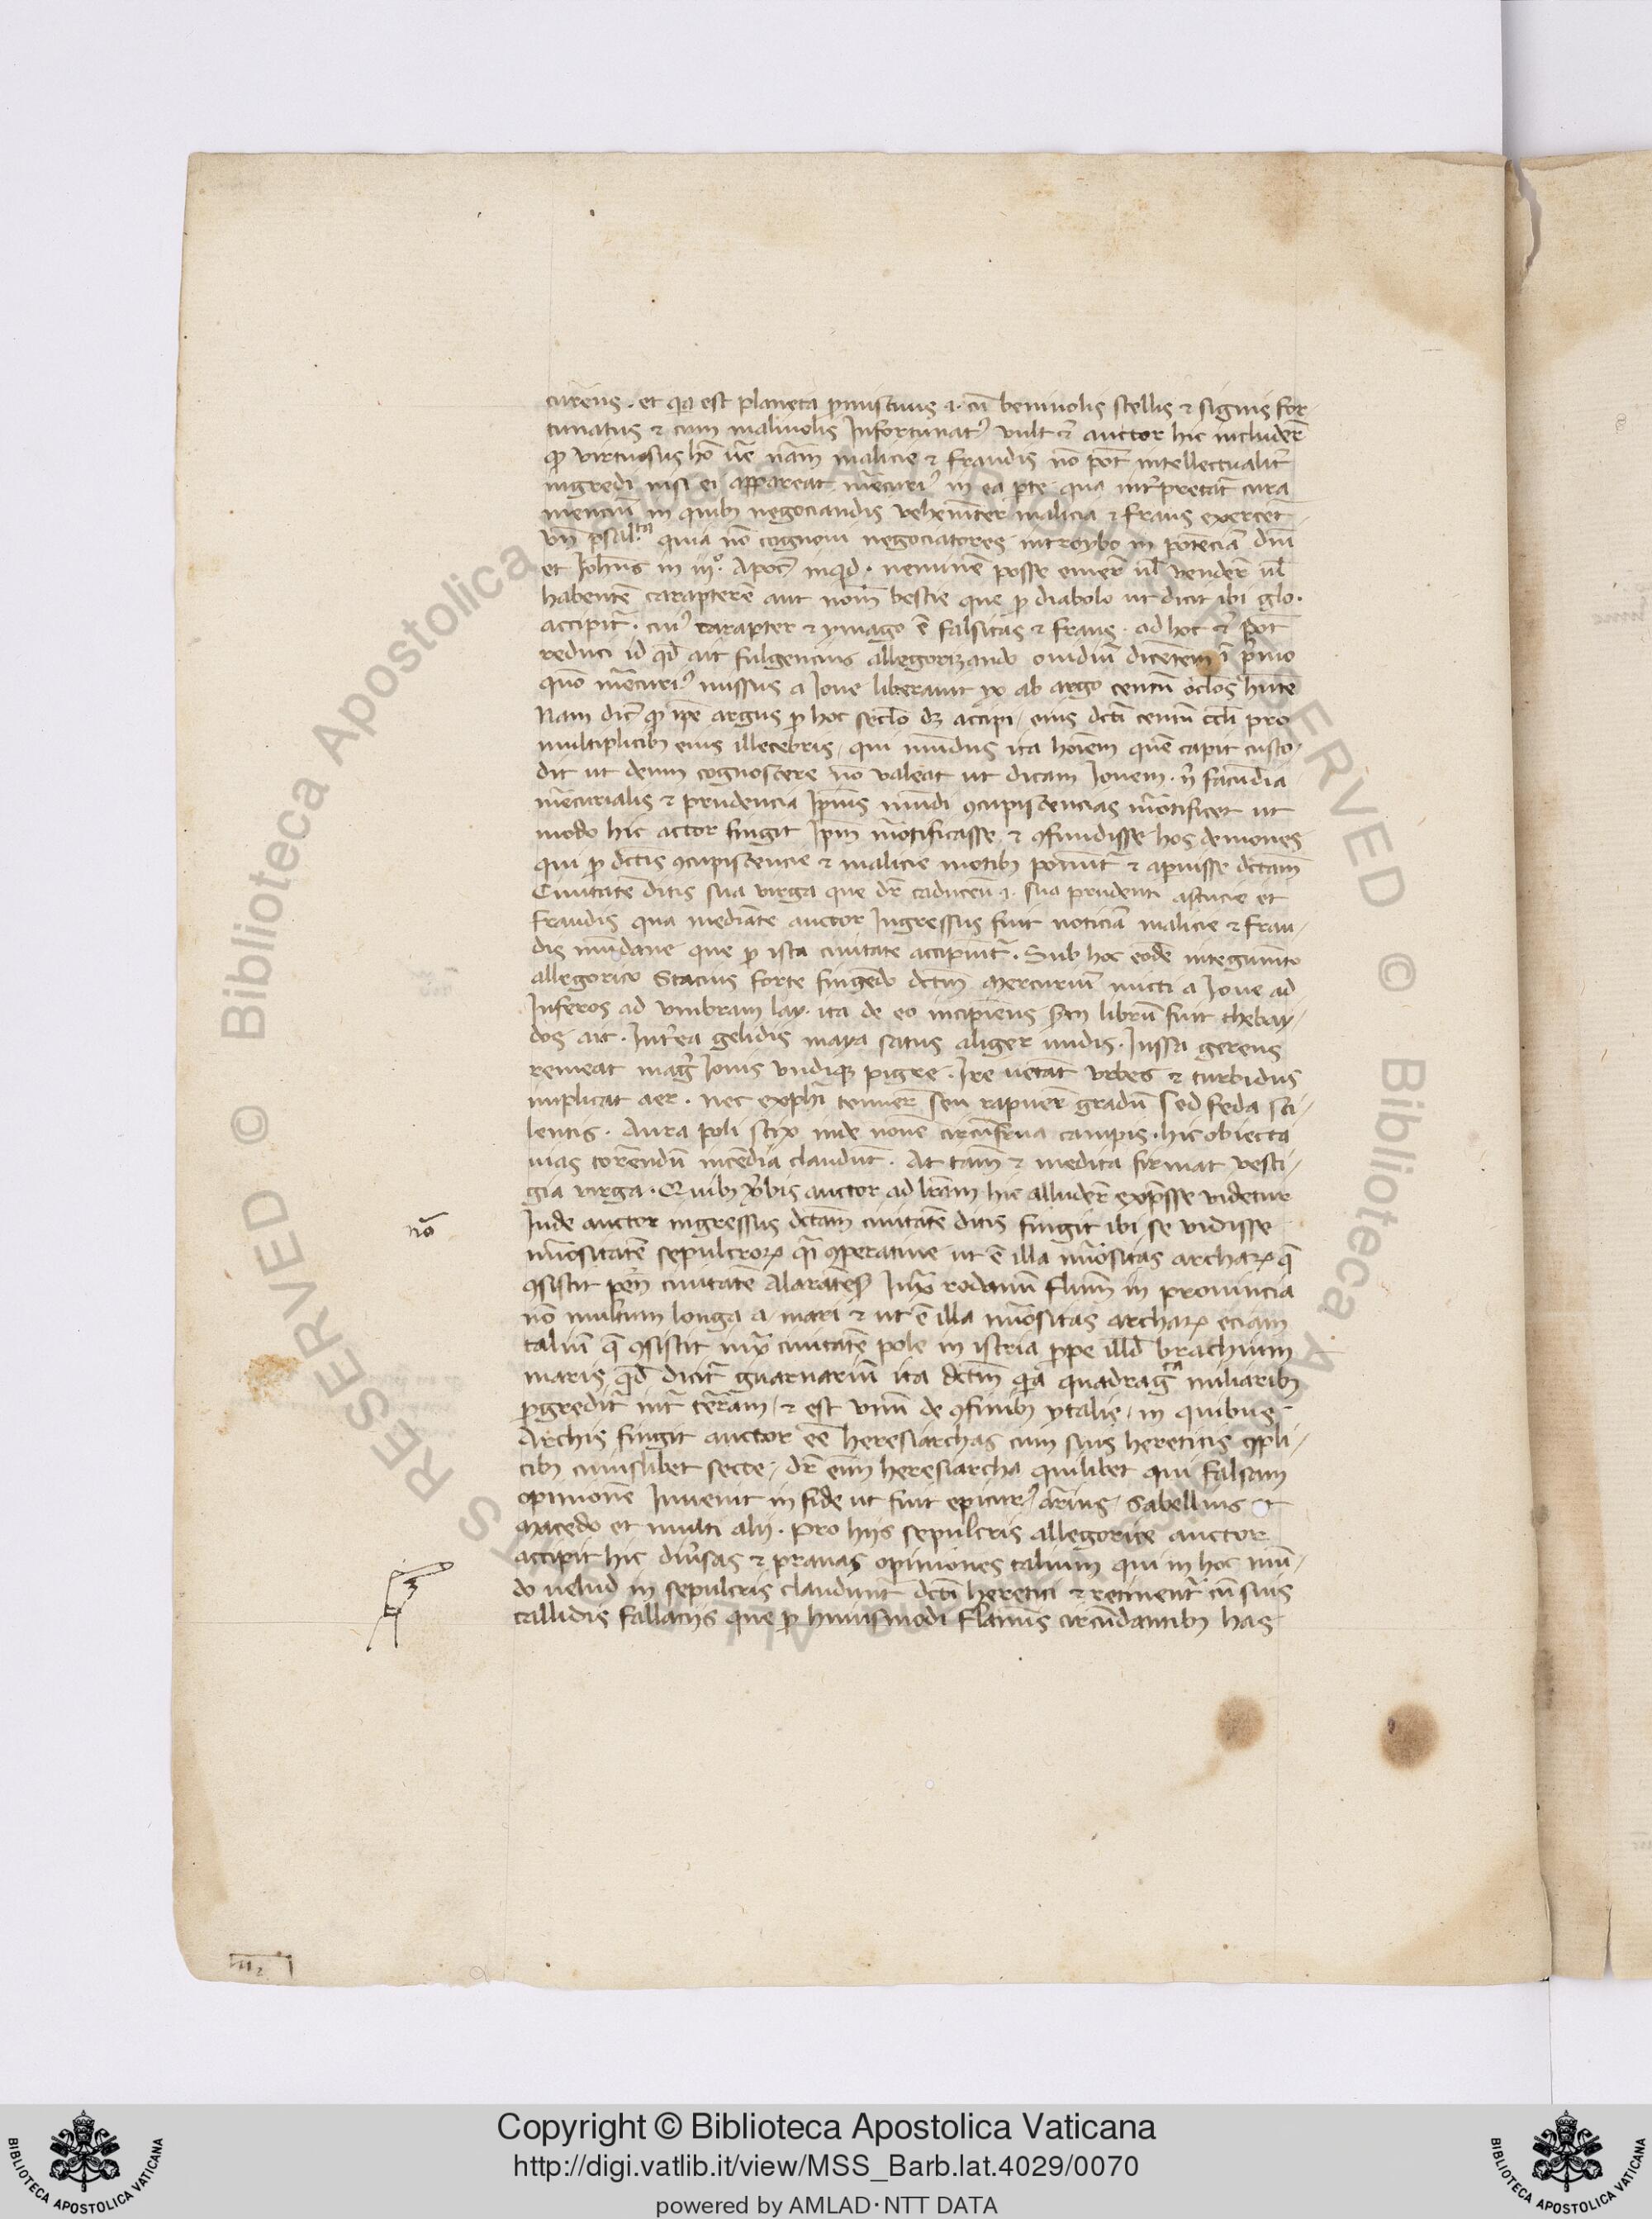 curens. et qa est planeta pmiscuus .i. cū beniuolis stellis ⁊ signis for-
tunatus ⁊ cum maliuolis Infortunat9 uult ⁊ auctor hic includer̄
qp virtuosus hō uē nām malicie ⁊ fraudis nō pōt intellectualit̄
ingredi nisi ei appareat mercuri9 in ea pte qua int̄pretat̄ cura
mencium in quibꝫ negociandis uehement̄er malicia ⁊ fraus exercet̄
Vn̄ psal.ta quia nō cognoui negociatores introybo in potenciā dnī
et Johns in iij.o Apoc̄ inqd. neminē posse emer̄ ul̄ vender̄ ul̄
habentē carapterē aut nom̄ bestie que p diabolo ut dicit ibi glo.
accipit̄. cui9 carapter ⁊ ymago ē falsitas ⁊ fraus. ad hoc ⁊ pōt
reduci id qd̄ ait fulgencius allegorizando ouidiū dicētem ī primo
quō mercuri9 missus a Joue liberauit yo ab argo centū oclōs hn̄te
Nam dic̄ qp ipē argus p hoc sclō dꝫ accipi, eius dcti centū ocl̄i pro
multiplicibꝫ eius illecebris, qui mūdus ita hoīem quē capit custo-
dit ut deum cognoscere nō valeat ut dicam Jouem. n̄ facūdia
mercurialis ⁊ prudencia Ip̄ius mūdi ꝯcupiscencias mortificet ut
modo hic actor fingit Ip̄m mortificasse ⁊ ꝯfundisse hos demones
qui p dcīs ꝯcupiscencie ⁊ malicie motibꝫ ponunt̄ ⁊ apuisse dctam
Ciuitatē ditis sua virga que dr̄ caduceū .i. sua prudenti astucie et
fraudis qua mediāte auctor Ingressus fuit noticiā malicie ⁊ frau-
dis mūdane que p ista ciuitate accipiūt̄. Sub hoc eodē integumēto
allegorico Stacius forte fingēdo dctm̄ mercuriū micti a Joue ad
Inferos ad vmbram lay. ita de eo incipiens scm̄ librū sui thebay-
dos ait. Int̄ea gelidis maya satus aliger undis. Jussa gerens
remeat maḡ Jouis vndiqꝫ pigre. Ire uetāt vrbes ⁊ turbidus
implicat aer. nec exphi tenuer̄ seu rapuer̄ gradū Sed feda sci-
lentis. Aura poli stix inde nouē circūfusa campis. hic obiecta
uias torēndū incēdia claudūt. At tam̄ ⁊ medica firmat vesti-
gia virga. Quibꝫ v̄bis auctor ad lrām hic alluder̄ exp̄sse videtur
Inde auctor ingressus dctam ciuitatē ditis fingit ibi se vidisse
nō
nūositatē sepulcroꝝ qī ꝯperatiue ut ē illa nūositas archaꝝ q̄
ꝯsistit pen̄ ciuitatē Alaratēsꝫ Iux̄ rodanū flum̄ in prouincia
nō multum longa a mari ⁊ ut ē illa nūositas archaꝝ eciam
taliū q̄ ꝯsistit iux̄ ciuitatē pole in istria ꝓpe illd̄ brachium
maris qd̄ dicit̄ guarnariū ita dctm̄ qa quadrag.ta miliaribꝫ
pgredit̄ int̄ terram, ⁊ est vnū de ꝯfinibꝫ ytalie, in quibus
Archis fingit auctor eē heresiarchas cum suis hereticis ꝯpli-
cibꝫ cuiuslibet secte, dr̄ eim heresiarcha quilibet qui falsam
opinionē Inuenit in fide ut fuit epicur9 arrius, Sabellius et
Macedo et multi alij. Pro hijs sepulcris allegorice auctor
accipit hic diu̓sas ⁊ prauas opiniones talium qui in hoc mū-
do uelud in sepulcris claudunt̄ dcti heretici ⁊ retinent̄ cū suis
callidis fallacijs que p huiusmodi flāmis circūdantibꝫ has
Copyright © Biblioteca Apostolica Vaticana
http://digi.vatlib.it/view/MSS_Barb.lat.4029/0070
powered by AMLAD·NTT DATA